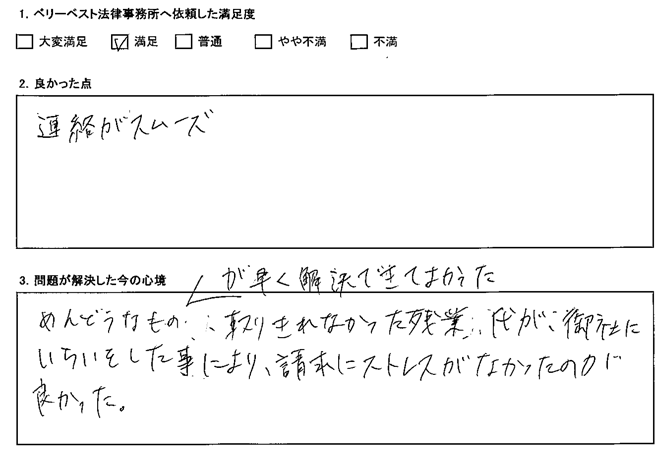 1. ベリーベスト法律事務所へ依頼した満足度
□ 大変満足 ☑ 満足 □ 普通 □ やや不満 □ 不満
2. 良かった点
連絡がスムーズ
3. 問題が解決した今の心境
が早く解決できてよかった
めんどうなもの
されなかった残業代が、御社に
いらいをした事により、請求にストレスがなかったのが
良かった。